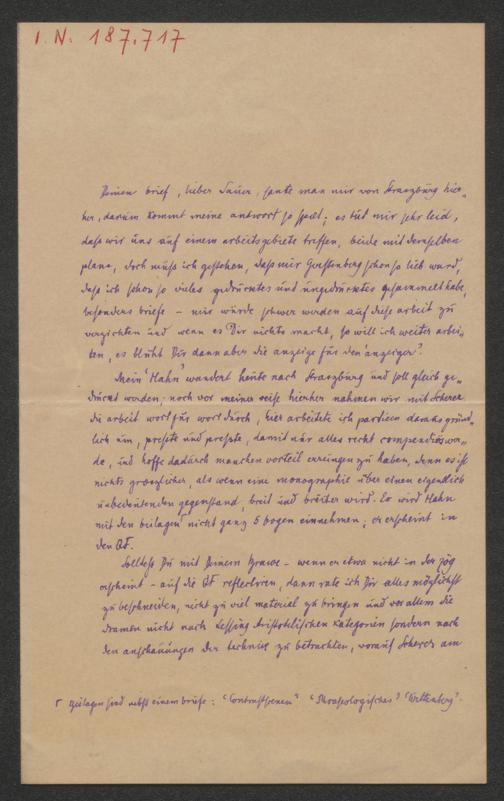 I. N. 187.717
Deinen brief, lieber Sauer, sante man mir von Strassburg hier-
her, darum kommt meine antwort so spät; es tut mir sehr leid,
dass wir uns auf einem arbeitsgebiete treffen, beide mit demselben
plane, doch muss ich gestehen, dass mir Gerstenberg schon so lieb ward,
dass ich schon so vieles gedrucktes und ungedrucktes gesammelt habe,
besonders briefe – mir würde schwer werden auf diese arbeit zu
verzichten und wenn es Dir nichts macht, so will ich weiter arbei-
ten, es blüht Dir dann aber die anzeige für den 'anzeiger'.
Mein 'Hahn' wandert heute nach Strassburg und soll gleich ge-
druckt werden; noch vor meiner reise hierher nahmen wir mit Scherer
die arbeit wort für wort durch, hier arbeitete ich partieen daraus gründ-
lich um, presste und presste, damit nur alles recht compendiös wer-
de, und hoffe dadurch manchen vorteil errungen zu haben, denn es ist
nichts grässlicher, als wenn eine monographie über einen eigentlich
unbedeutenden gegenstand, breit und breiter wird. Es wird Hahn
mit den beilagen⌈ nicht ganz 5 bogen einnehmen; er erscheint in
den QF.
Solltest Du mit Deinem Brawe – wenn er etwa nicht in der zög
erscheint – auf die QF reflectiren, dann rate ich Dir alles möglichst
zu beschneiden, nicht zu viel material zu bringen und vor allem die
dramen nicht nach Lessing Aristotelischen kategorien sondern nach
den anschauungen der technik zu betrachten, worauf Scherer am
⌈ Beilagen sind nebst einem briefe: "Contrastscenen" "Phraseologisches" "Wittenberg".